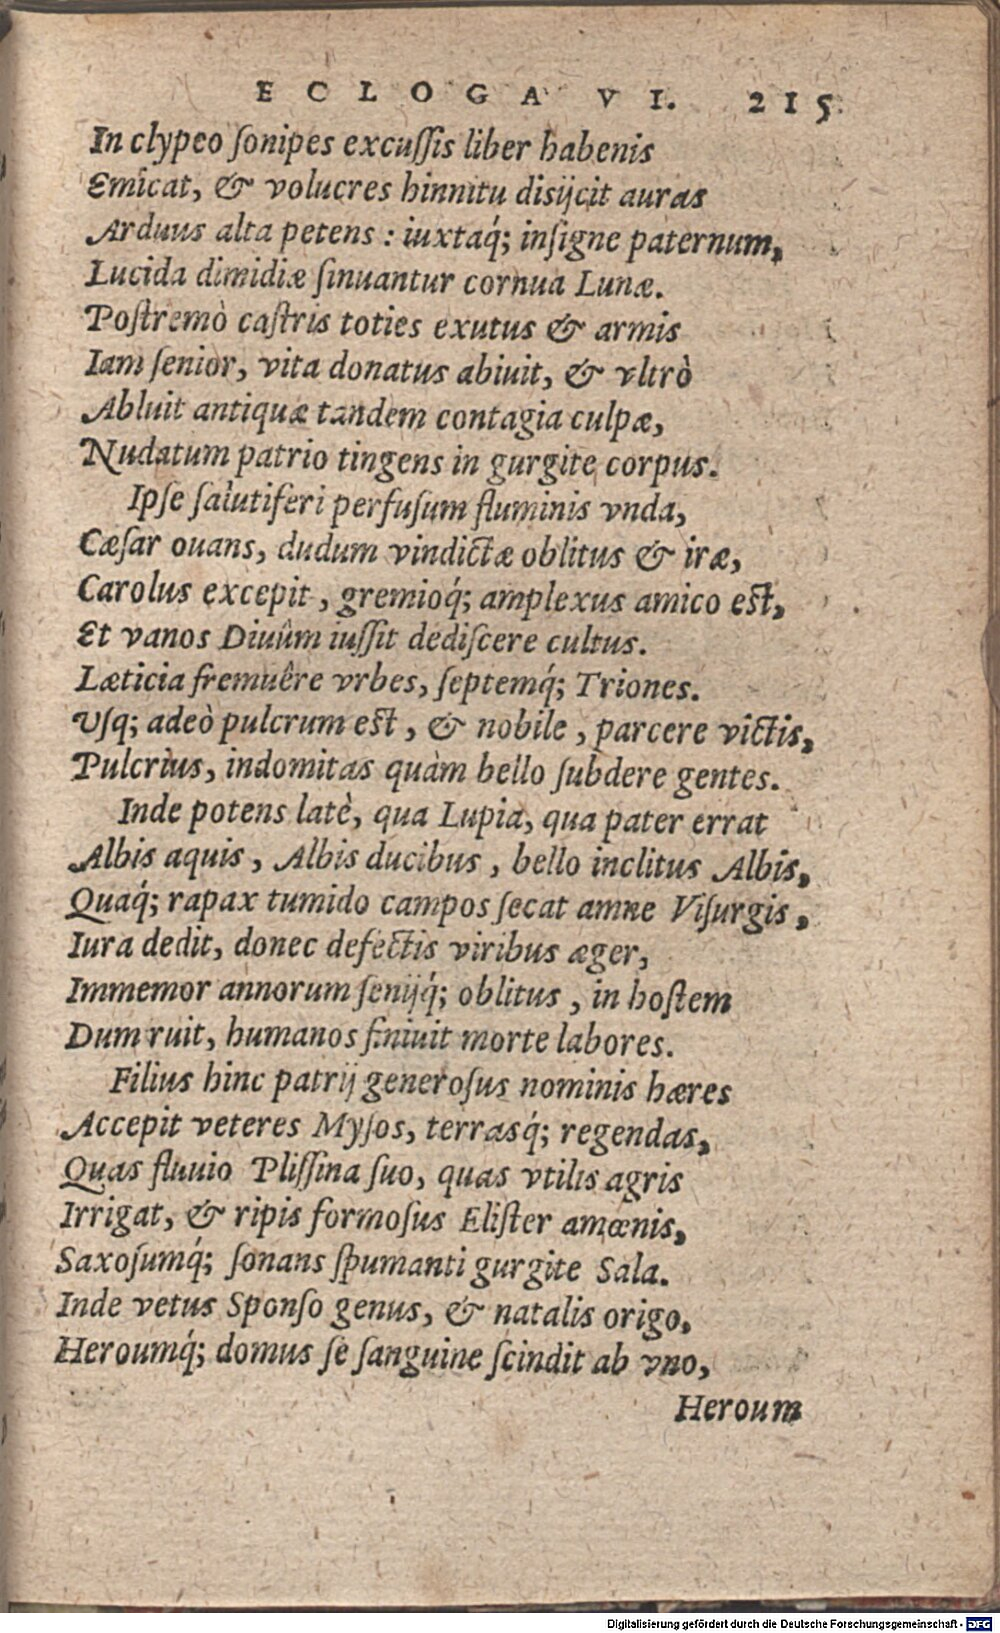 ECLOGA VI. 215.
In clypeo ſonipes excuſſis liber habenis
Emicat, & volucres hinnitu disijcit auras
Arduus alta petens : iuxtaq́; inſigne paternum,
Lucida dimidiæ ſinuantur cornua Lunæ.
Poſtremò caſtris toties exutus & armis
Iam ſenior, vita donatus abiuit, & vltrò
Abluit antiquæ tandem contagia culpæ,
Nudatum patrio tingens in gurgite corpus.
Ipſe ſalutiferi perfuſum fluminis vnda,
Cæſar ouans, dudum vindictæ oblitus & iræ,
Carolus excepit, gremioq́; amplexus amico eſt,
Et vanos Diuûm iuſſit dediſcere cultus.
Læticia fremuêre vrbes, ſeptemq́; Triones.
Uſq; adeò pulcrum eſt, & nobile, parcere victis,
Pulcrius, indomitas quàm bello ſubdere gentes.
Inde potens latè, qua Lupia, qua pater errat
Albis aquis, Albis ducibus, bello inclitus Albis,
Quaq́; rapax tumido campos ſecat amne Viſurgis,
Iura dedit, donec defectis viribus æger,
Immemor annorum ſenijq́; oblitus, in hoſtem
Dum ruit, humanos finiuit morte labores.
Filius hinc patrij generoſus nominis hæres
Accepit veteres Myſos, terrasq́; regendas,
Quas fluuio Pliſſina ſuo, quas vtilis agris
Irrigat, & ripis formoſus Eliſter amœnis,
Saxoſumq́; ſonans ſpumanti gurgite Sala.
Inde vetus Sponſo genus, & natalis origo,
Heroumq́; domus ſe ſanguine ſcindit ab vno,
Heroum
Digitalisierung gefördert durch die Deutsche Forschungsgemeinschaft - DFG